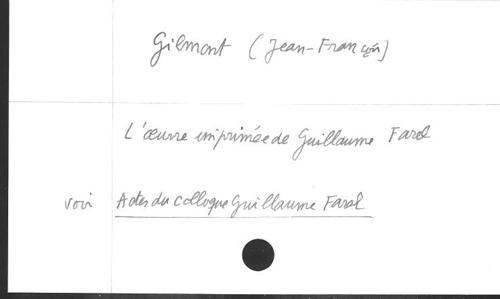 Gilmont (Jean-François)
L'œuvre imprimée de Guillaume Farel
voir Actes du colloque Guillaume Farel